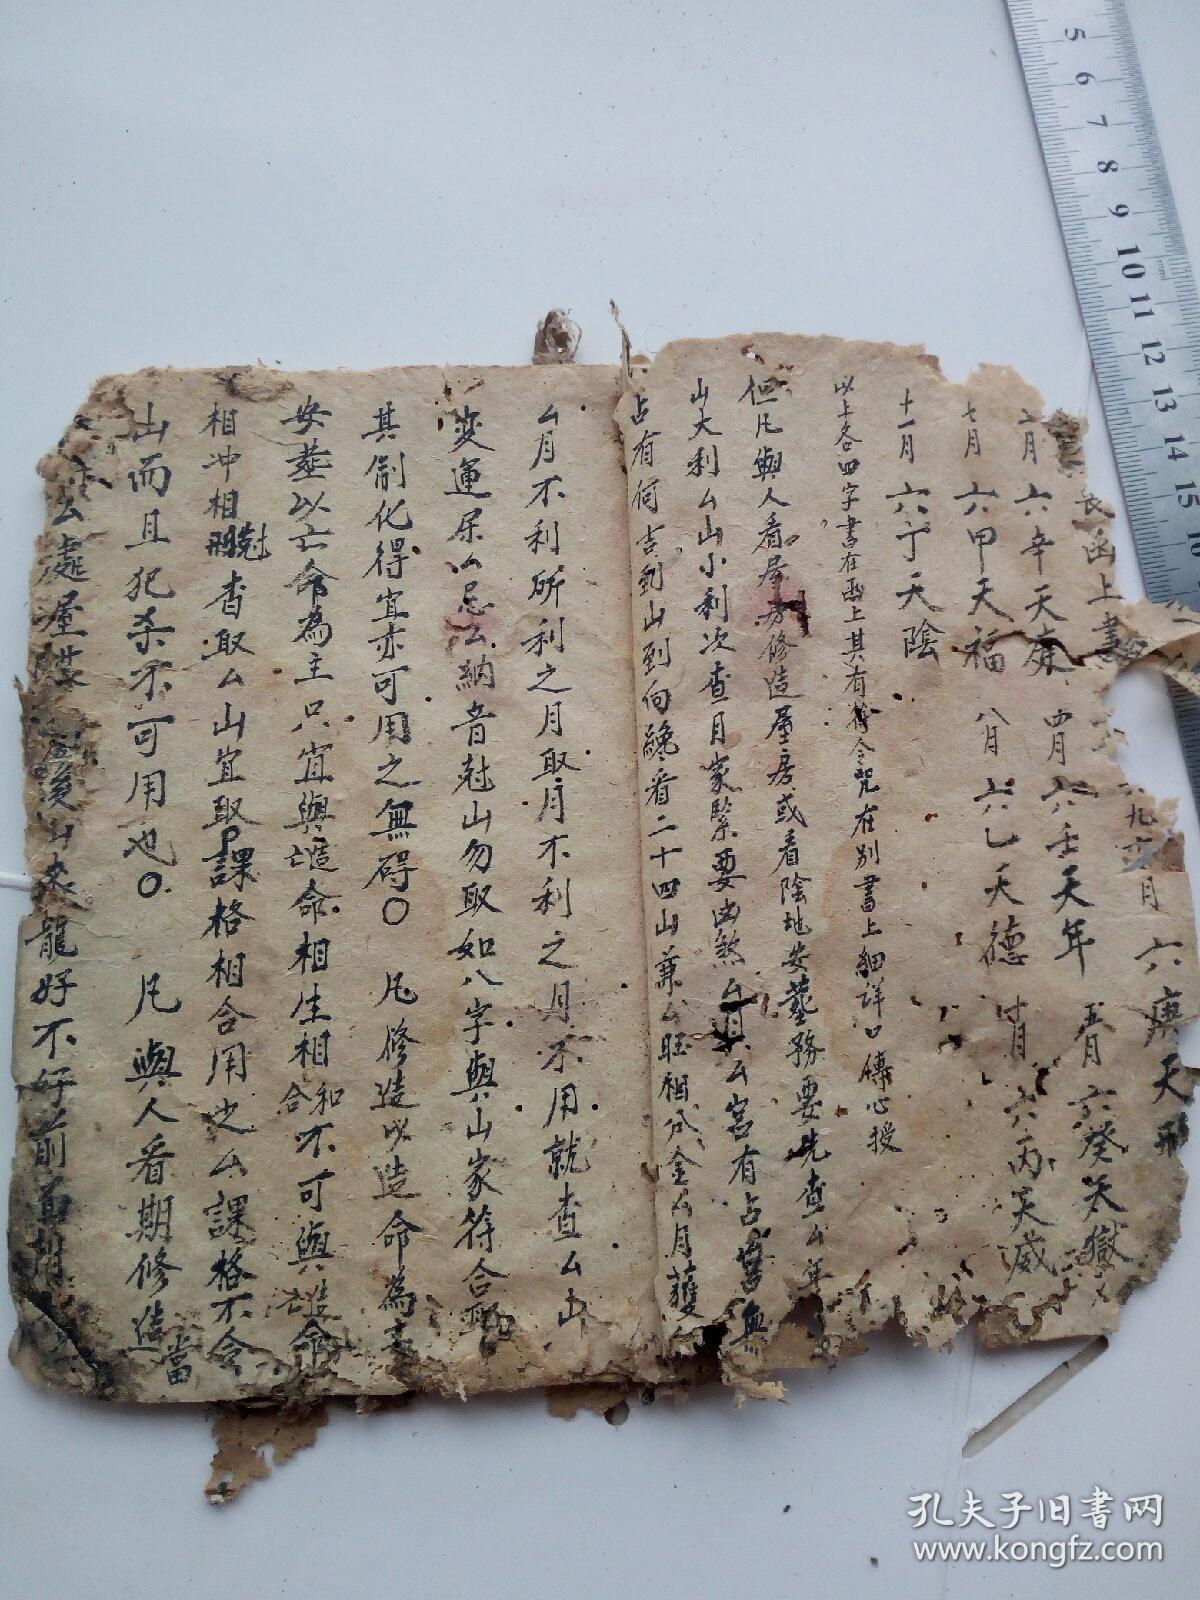 長函上書
九六月 六庚天刑
六月 六辛天庭 四月 六壬天年 五月 六癸天獄
七月 六甲天福 八月 六乙天德 十月 六丙天威
十一月 六丁天陰
以上各四字書在函上其有符令咒在別書上細詳口傳心授
但凡與人看居房修造屋房或看陰地安塟務要先查厶年
山大利厶山小利次查月家緊要凶煞厶月厶宮有占舊無
占有何吉到山到向纔看二十四山兼厶旺相分金厶月獲
厶月不利所利之月取月不利之月不用就查厶山
变運屎厶忌厶納音尅山勿取如八字與山家符合取
其制化得宜亦可用之無碍〇 凡修造以造命為主
安塟以亡命為主只宜與造命相生相合和不可與造命
相冲相刑尅 查取厶山宜取課格相合用之厶課格不合
山而且犯杀不可用也〇 凡與人看期修造當
厶處屋 後山來龍好不好前
5
6
7
8
9
10
11
12
13
14
15
16
孔夫子旧书网
www.kongfz.com